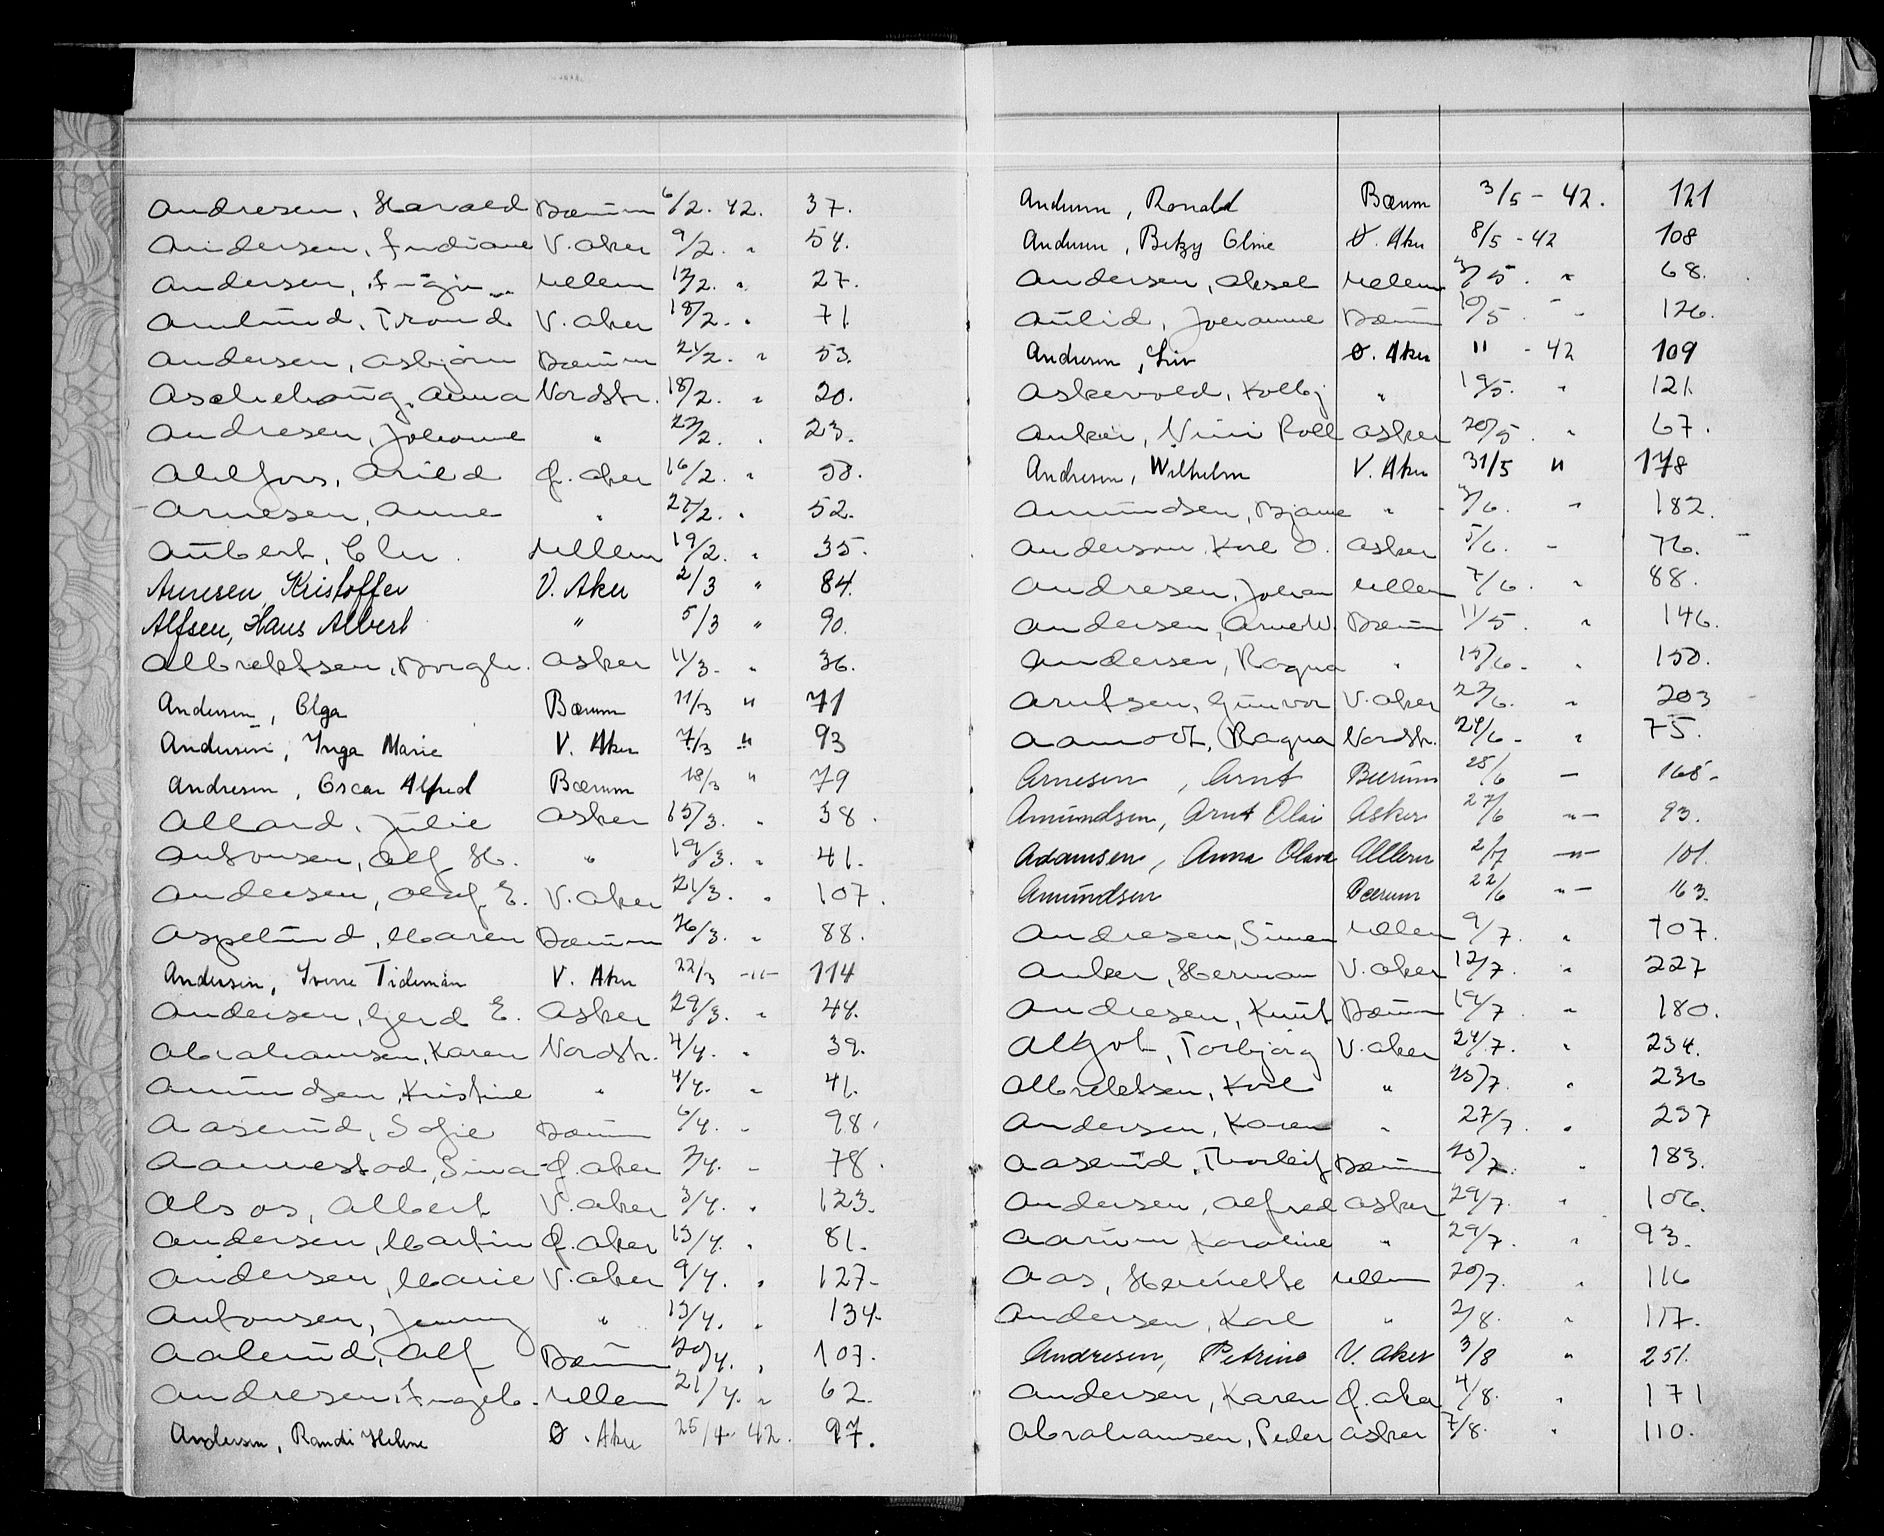 Andresen, Harald Bærum 6/2. 42. 37.
Andersen, V. Aker 9/2. " 54.
Andersen, Ullern 12/2. " 27.
Amlund, Trond V. Aker 18/2. " 71.
Andersen, Asbjørn Bærum 21/2. " 53.
Aschehoug, Anna Nordstr. 18/2. " 20.
Andresen, Johanne " 22/2. " 23.
Ahlfors, Arild Ø. Aker 16/2. " 50.
Arnesen, Anne " 27/2. " 52.
Aubert, Elm. Ullern 19/2. " 35.
Arnesen, Kristoffer V. Aker 2/3 " 84.
Alfsen, Hans Albert " 5/3 " 90.
Albrektsen, Borgh. Asker 11/3. " 36.
Andersen, Olga Bærum 11/3 " 71
Andersen, Inga Marie V. Aker 7/3 " 93
Andresen, Oscar Alfred Bærum 18/3 " 79
Allard, Julie Asker 15/3. " 38.
Antonsen, Alf H. " 19/3. " 41.
Andersen, Olaf E. V. Aker 21/3. " 107.
Aspelund, Maren Bærum 26/3. " 88.
Andersen, Sverre Tideman V. Aker 22/3 -"- 114
Andersen, Gerd E. Asker 29/3. " 44.
Abrahamsen, Karen Nordstr. 4/4. " 39.
Amundsen, Kristine " 4/4. " 41.
Aaserud, Sofie Bærum 6/4. " 98.
Aamestad, Sina Ø. Aker 7/4. " 78.
Alsos, Albert V. Aker 3/4. " 123.
Andersen, Martin Ø. Aker 13/4. " 81.
Andersen, Marie V. Aker 9/4. " 127.
Antonsen, Jenny " 13/4. " 134.
Aalerud, Alf Bærum 20/4. " 107.
Andresen, Ingeb. Ullern 21/4. " 62.
Andersen, Randi Helene Ø. Aker 25/4 42. 97.
Andersen, Ronald Bærum 3/5 - 42. 121
Andersen, Betzy Oline Ø. Aker 8/5 - 42 108
Andersen, Aksel Ullern 3/5. " 68.
Aulid, Johanne Bærum 10/5. " 126.
Andresen, Liv Ø. Aker 11 - 42 109
Askevold, Kolbj " 19/5. " 121.
Anker, Nini Roll Asker 20/5. " 67.
Andresen, Wilhelm V. Aker 31/5 " 178
Amundsen, Bjarne " 3/6. " 182.
Anderson Karl O. Asker 5/6. " 76.
Andresen, Johan Ullern 7/6. " 88.
Andersen, Arne W. Bærum 11/5. " 146.
Andersen, Ragna " 15/6. " 150.
Arntsen, Gunvor V. Aker 22/6. " 203
Aamodt, Ragna Nordstr. 24/6. " 75.
Arnesen, Arnt Bærum 25/6 - 165.
Amundsen, Arnt Olai Asker 27/6 -"- 93.
Adamsen, Anna Olava Ullern 2/7 -"- 101.
Amundsen Bærum 22/6 "- 163.
Andresen, Simen Ullern 9/7. " 107.
Anker, Herman V. Aker 12/7. " 227
Andresen, Knut Bærum 19/7. " 180.
Algot, Torbjørg V. Aker 24/7. " 234.
Albrektsen, Karl " 25/7. " 236
Andersen, Karen " 27/7. " 237
Aaserud, Thorleif Bærum 25/7. " 183.
Andersen, Alfred Asker 29/7. " 106.
Aarum Karoline " 29/7. " 93.
Aas, Henriette Ullern 20/7. " 116
Andersen, Karl " 2/8. " 117.
Andresen, Petrine V. Aker 3/8 " 251.
Andersen, Karen Ø. Aker 4/8. " 171
Abrahamsen, Peder Asker 7/8. " 110.